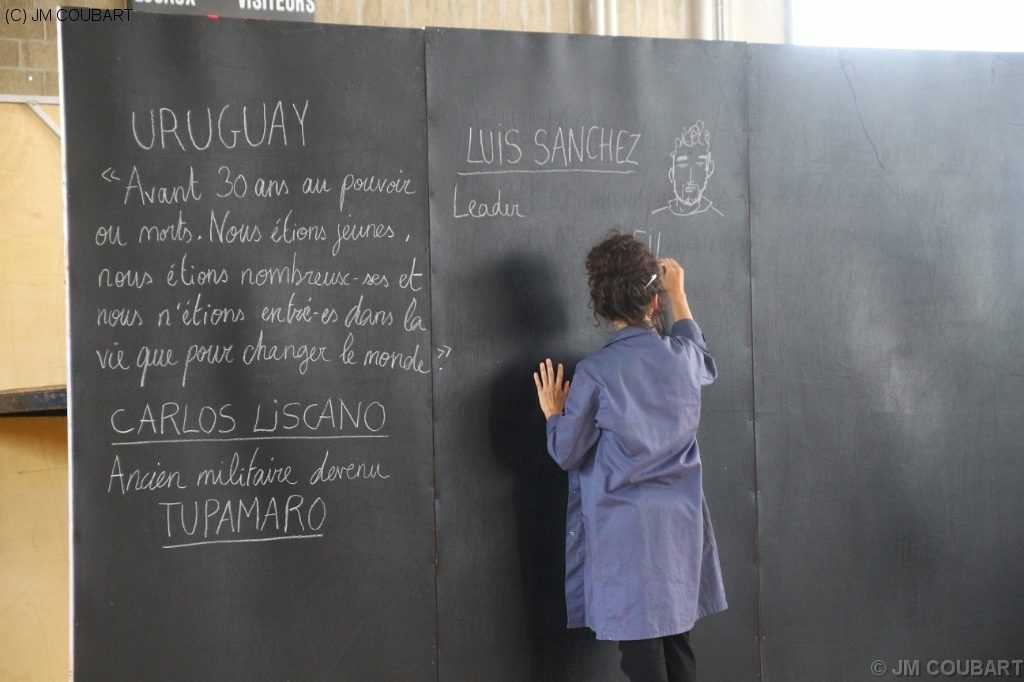 (C) JM COUBART
LOCAUX VISITEURS
URUGUAY
"Avant 30 ans au pouvoir
ou morts. Nous étions jeunes,
nous étions nombreux-ses et
nous n'étions entré-es dans la
vie que pour changer le monde"
CARLOS LISCANO
Ancien militaire devenu
TUPAMARO
LUIS SANCHEZ
Leader
© JM COUBART